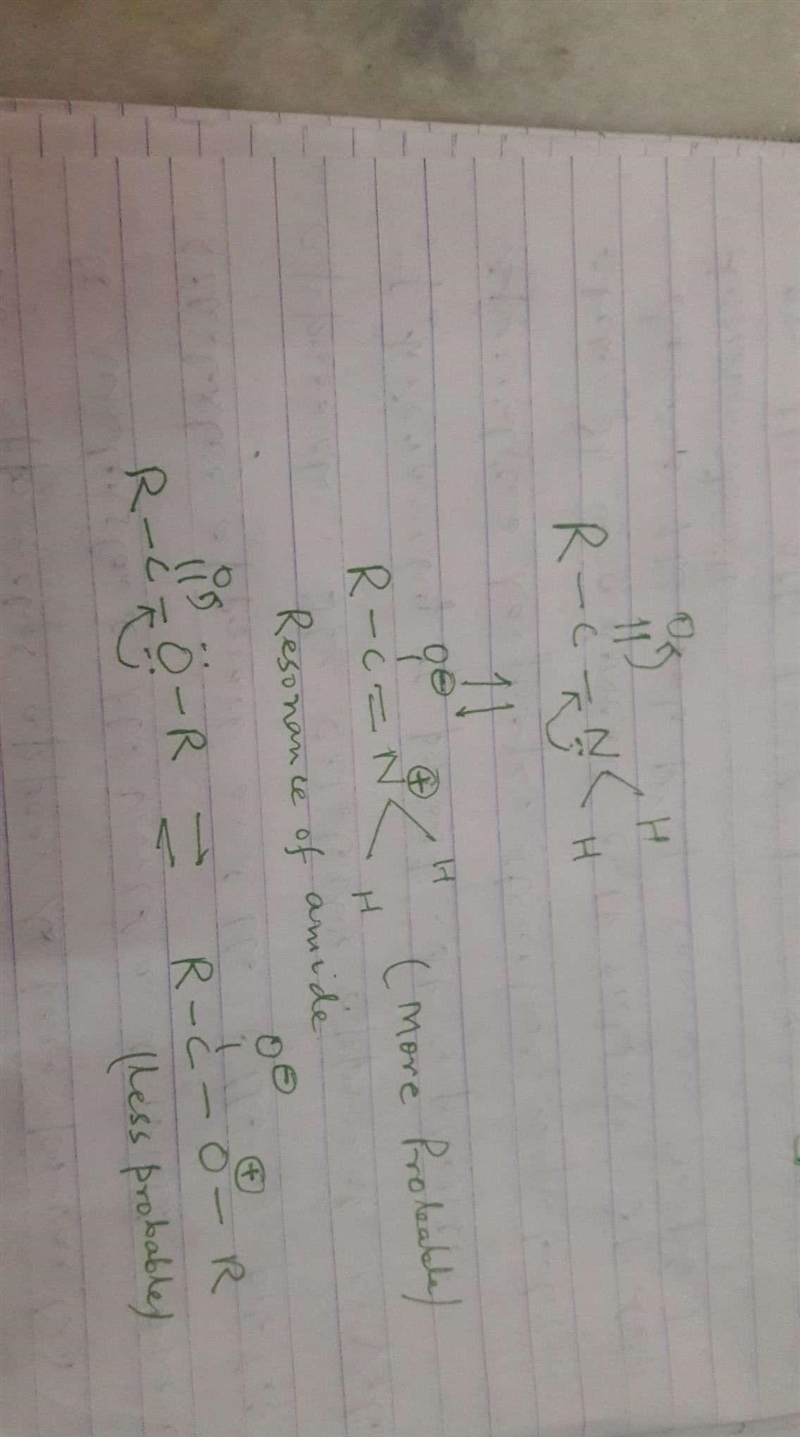 O
||
R-C-N̈<H
H
⇌
O⊖
|
R-C=N⊕<H
H
(More Probable)
Resonance of amide
O
||
R-C-Ö-R ⇌ R-C-O⊕-R
O⊖
|
(less probable)